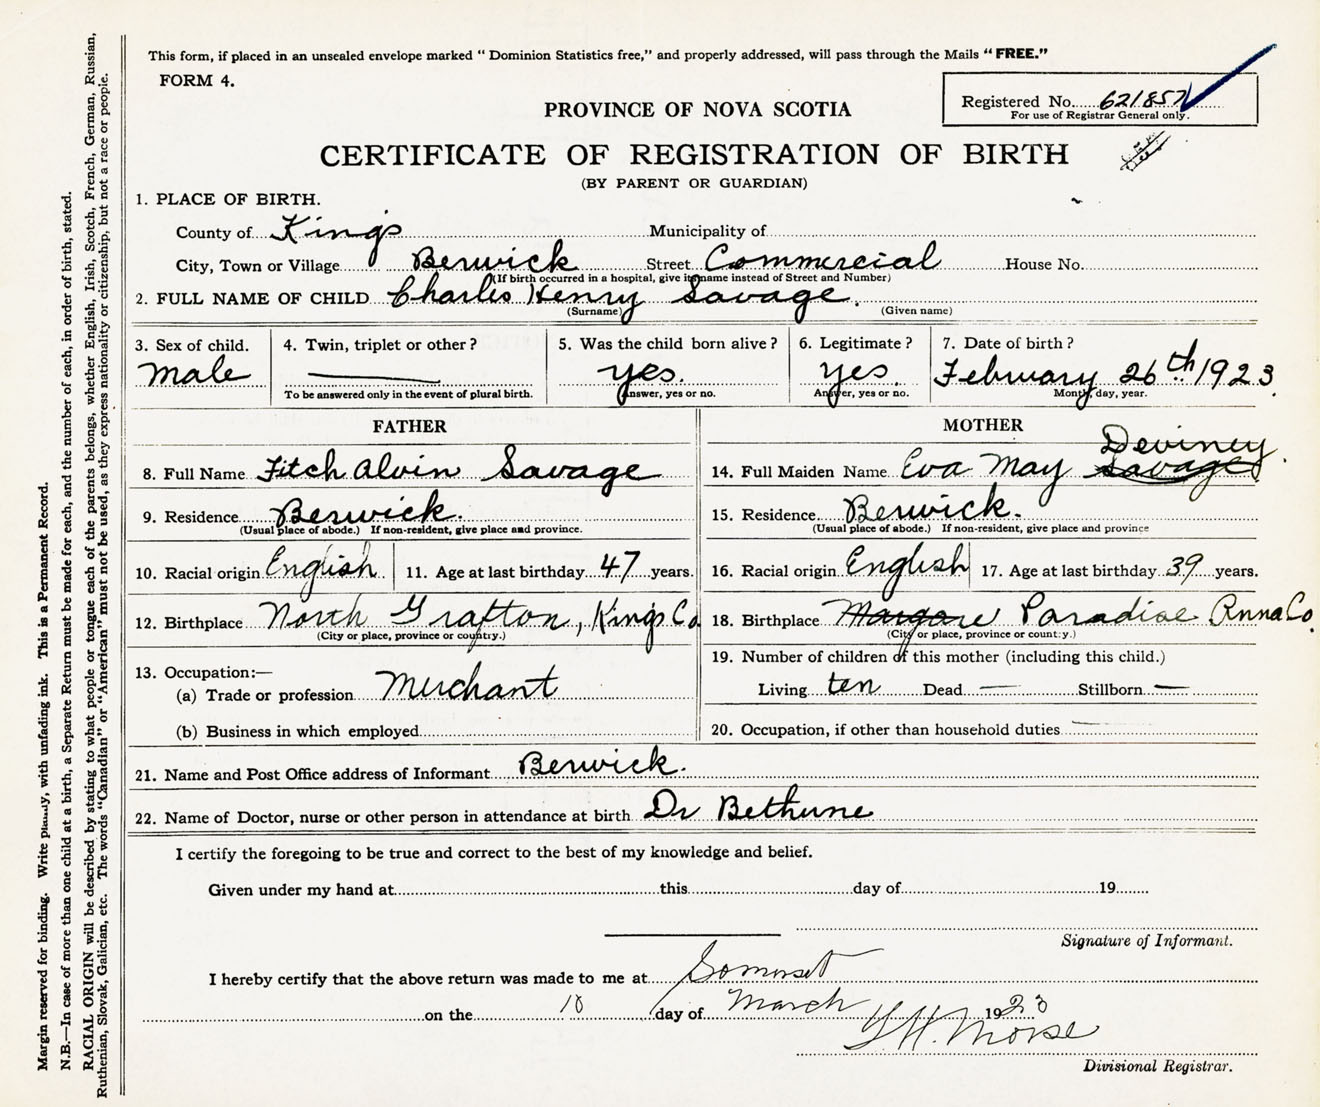 This form, if placed in an unsealed envelope marked “ Dominion Statistics free,” and properly addressed, will pass through the Mails “ FREE.”
FORM 4.
Registered No. 621857
For use of Registrar General only.
PROVINCE OF NOVA SCOTIA
CERTIFICATE OF REGISTRATION OF BIRTH
(BY PARENT OR GUARDIAN)
1. PLACE OF BIRTH.
County of Kings Municipality of
City, Town or Village Berwick Street Commercial House No.
(If birth occurred in a hospital, give its name instead of Street and Number)
2. FULL NAME OF CHILD Charles Henry Savage.
(Surname) (Given name)
3. Sex of child. 4. Twin, triplet or other? 5. Was the child born alive? 6. Legitimate? 7. Date of birth?
Male yes. yes. February 26th 1923.
To be answered only in the event of plural birth. Answer, yes or no. Answer, yes or no. Month, day, year.
FATHER
8. Full Name Fitch Alvin Savage
9. Residence Berwick.
(Usual place of abode.) If non-resident, give place and province.
10. Racial origin English 11. Age at last birthday 47 years.
12. Birthplace North Grafton, Kings Co
(City or place, province or country.)
13. Occupation:—
(a) Trade or profession Merchant
(b) Business in which employed
MOTHER
14. Full Maiden Name Eva May Savage Deviney.
15. Residence Berwick.
(Usual place of abode.) If non-resident, give place and province
16. Racial origin English 17. Age at last birthday 39 years.
18. Birthplace Paradise Anna Co.
(City or place, province or country.)
19. Number of children of this mother (including this child.)
Living ten Dead — Stillborn —
20. Occupation, if other than household duties
21. Name and Post Office address of Informant Berwick.
22. Name of Doctor, nurse or other person in attendance at birth Dr Bethune
I certify the foregoing to be true and correct to the best of my knowledge and belief.
Given under my hand at this day of 19
Signature of Informant.
I hereby certify that the above return was made to me at Somerset
on the 10 day of March 1923
Morse
Divisional Registrar.
Margin reserved for binding. Write plainly, with unfading ink. This is a Permanent Record.
N.B.—In case of more than one child at a birth, a Separate Return must be made for each, and the number of each, in order of birth, stated.
RACIAL ORIGIN will be described by stating to what people or tongue each of the parents belongs, whether English, Irish, Scotch, French, German, Russian,
Ruthenian, Slovak, Galician, etc. The words “Canadian” or “American” must not be used, as they express nationality or citizenship, but not a race or people.